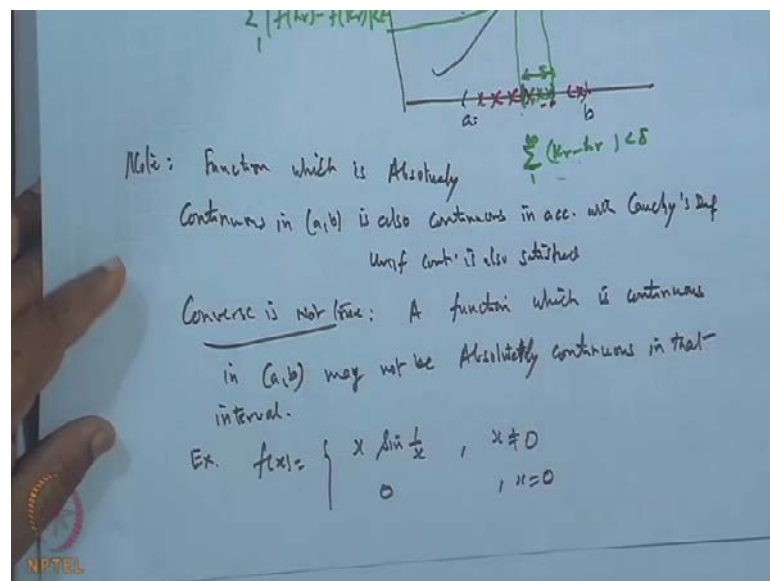 Σ |f(hr) - f(kr)| < ε
1
a
b
∞
Σ (kr - hr) < δ
1
Note: Function which is Absoluely
Continuous in (a,b) is also continuous in acc. with Cauchy's Def
Unif cont. is also satisfied
Converse is Not true: A function which is continuous
in (a,b) may not be Absolutely continuous in that
interval.
Ex. f(x) = { x Sin 1/x , x ≠ 0
0 , x=0
NPTEL